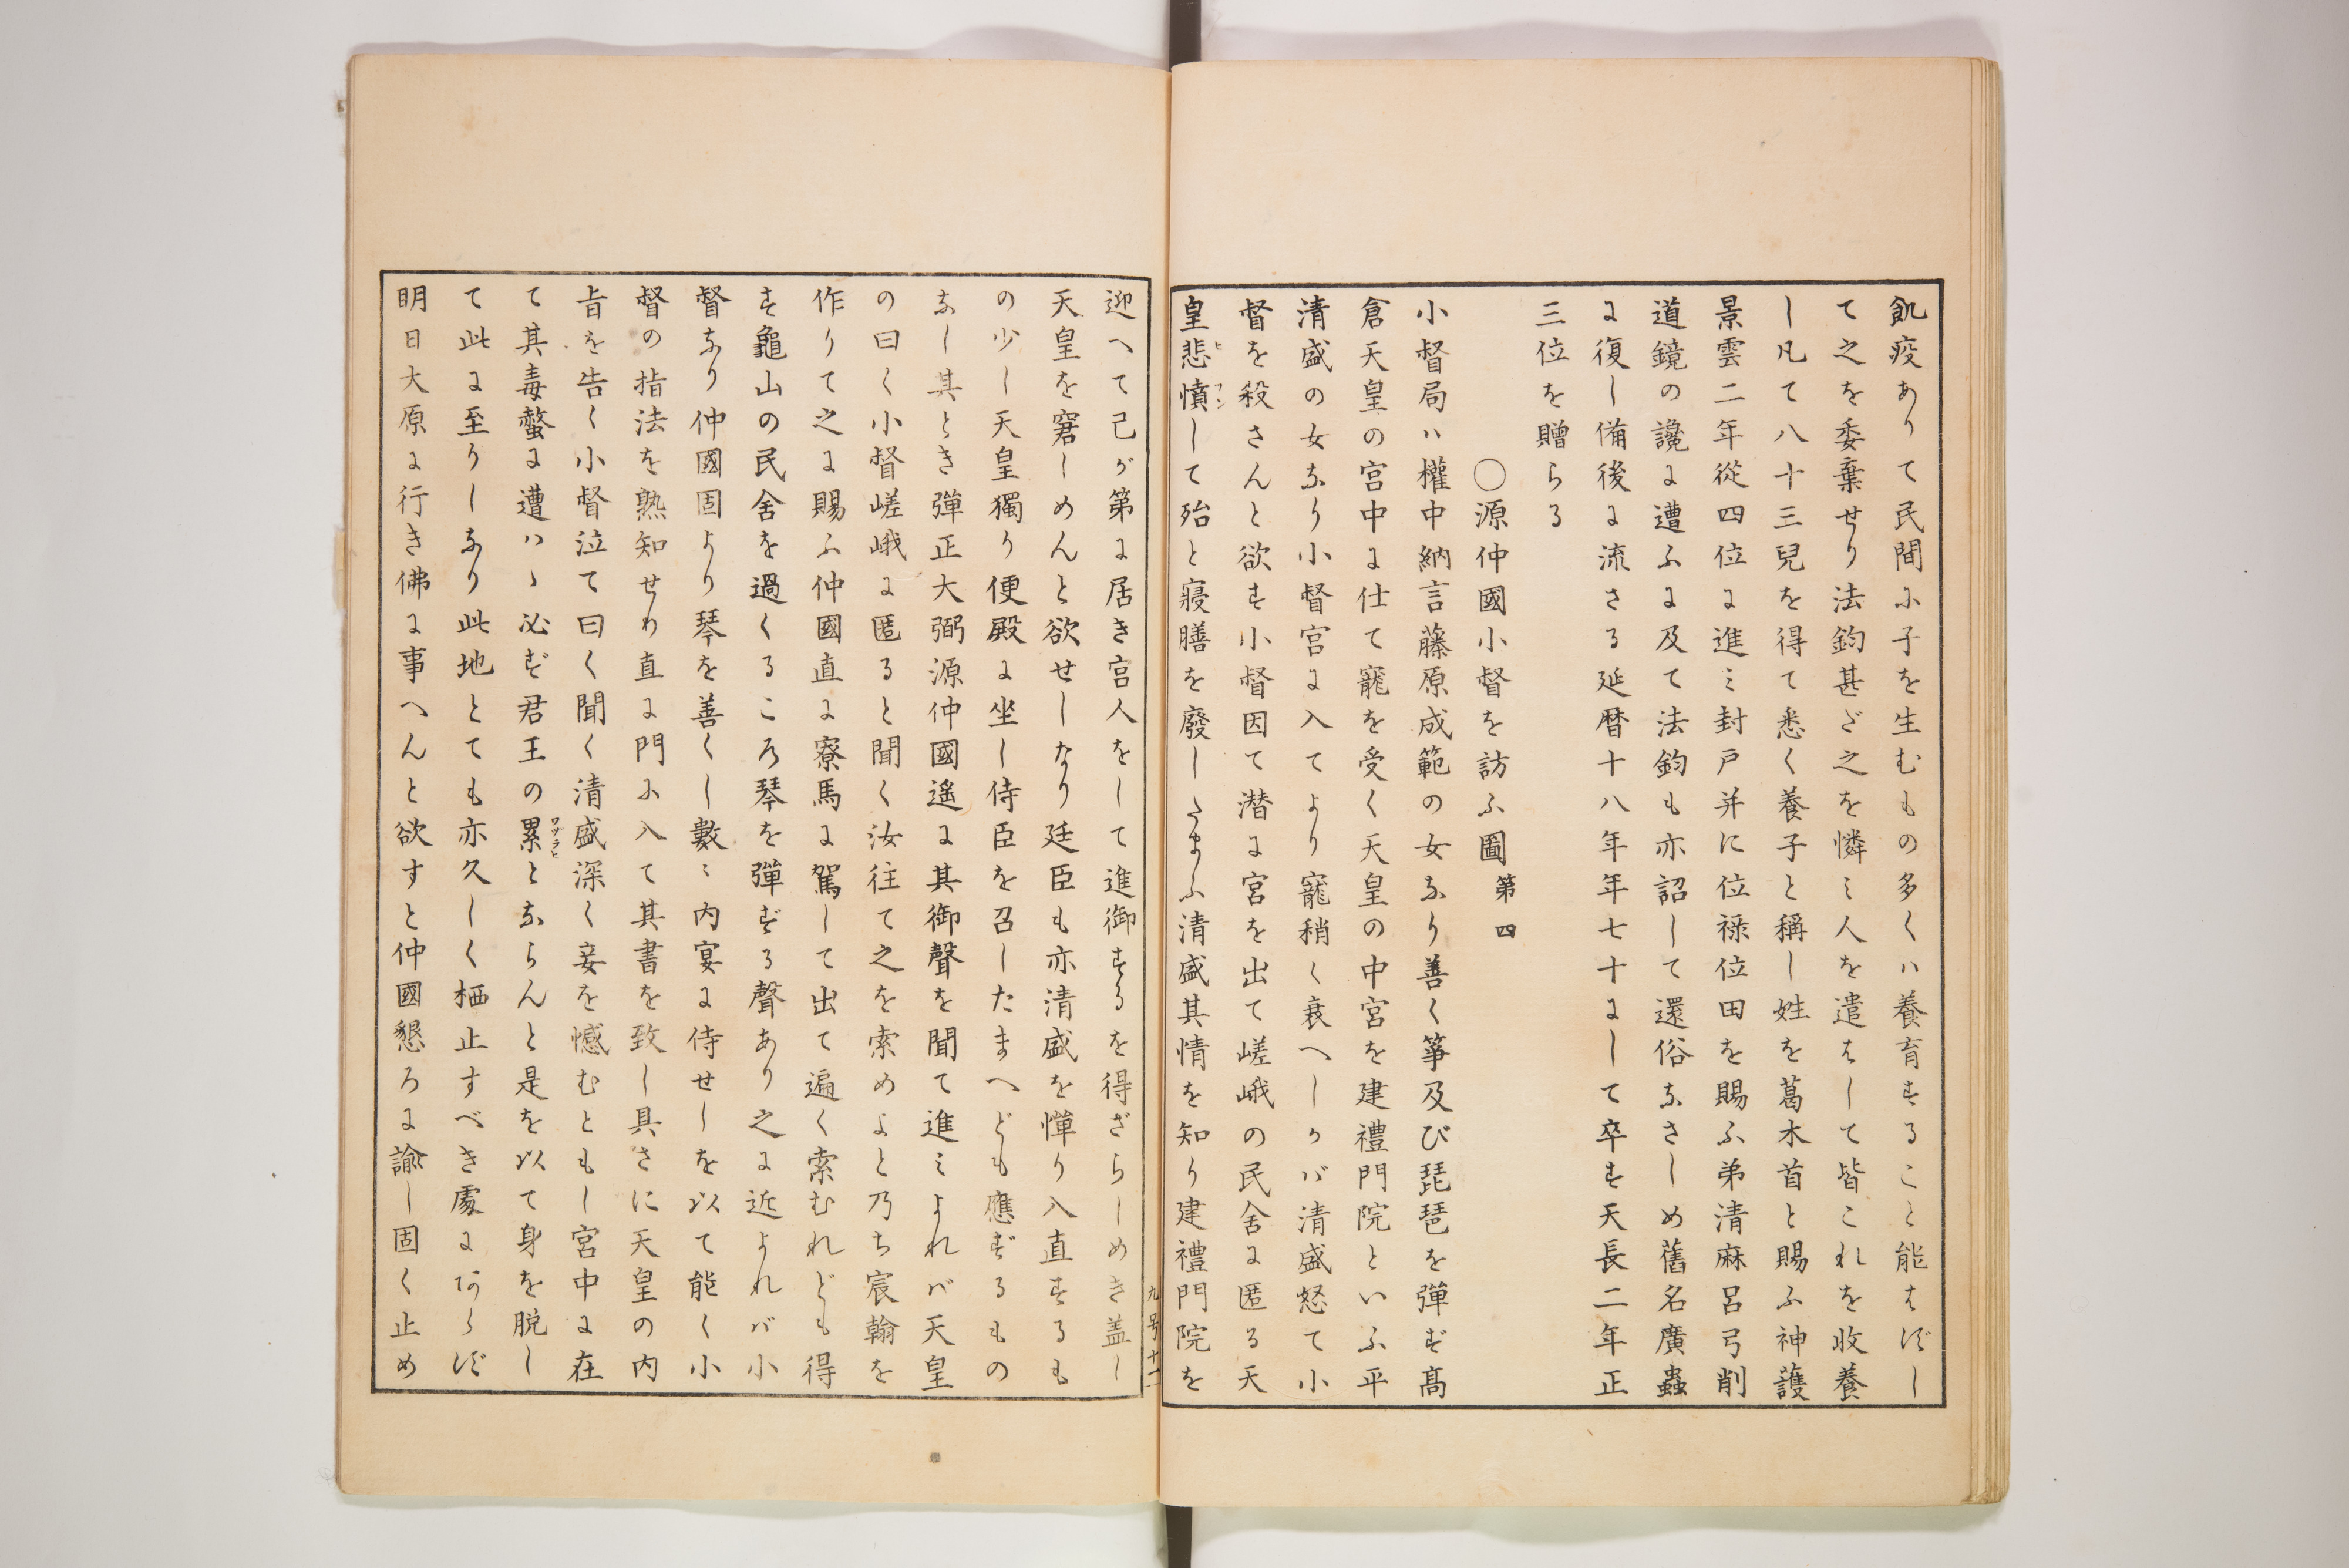 飢疫ありて民間に子を生むもの多くハ養育すること能はずし
て之を委棄せり法鈞甚ざ之を憐ミ人を遣はして皆これを收養
し凡て八十三兒を得て悉く養子と稱し姓を葛木首と賜ふ神護
景雲二年從四位に進ミ封戸并に位禄位田を賜ふ弟清麻呂弓削
道鏡の讒に遭ふに及て法鈞も亦詔して還俗なさしめ舊名廣蟲
に復し備後に流さる延暦十八年年七十にして卒す天長二年正
三位を贈らる
〇源仲國小督を訪ふ圖 第四
小督局ハ權中納言藤原成範の女なり善く箏及び琵琶を彈ず髙
倉天皇の宮中に仕て寵を受く天皇の中宮を建禮門院といふ平
清盛の女なり小督宮に入てより寵稍く衰へしかバ清盛怒て小
督を殺さんと欲す小督因て潜に宮を出て嵯峨の民舍に匿る天
皇悲憤ヒフンして殆と寢膳を廢したまふ清盛其情を知り建禮門院を
迎へて己が第に居き宮人をして進御するを得ざらしめき蓋し
天皇を窘しめんと欲せしなり廷臣も亦清盛を憚り入直するも
の少し天皇獨り便殿に坐し侍臣を召したまへども應ずるもの
なし其とき彈正大弼源仲國遙に其御聲を聞て進ミよれバ天皇
の曰く小督嵯峨に匿ると聞く汝往て之を索めよと乃ち宸翰を
作りて之に賜ふ仲國直に寮馬に駕して出て遍く索むれども得
ず龜山の民舍を過くるころ琴を彈ずる聲あり之に近よれバ小
督なり仲國固より琴を善くし數〻内宴に侍せしを以て能く小
督の指法を熟知せり直に門に入て其書を致し具さに天皇の内
旨を告く小督泣て曰く聞く清盛深く妾を憾むともし宮中に在
て其毒螫に遭ハヽ必ず君王の累ワヅラヒとならんと是を以て身を脱し
て此に至りしなり此地とても亦久しく栖止すべき處にあらず
明日大原に行き佛に事へんと欲すと仲國懇ろに諭し固く止め
九号十一